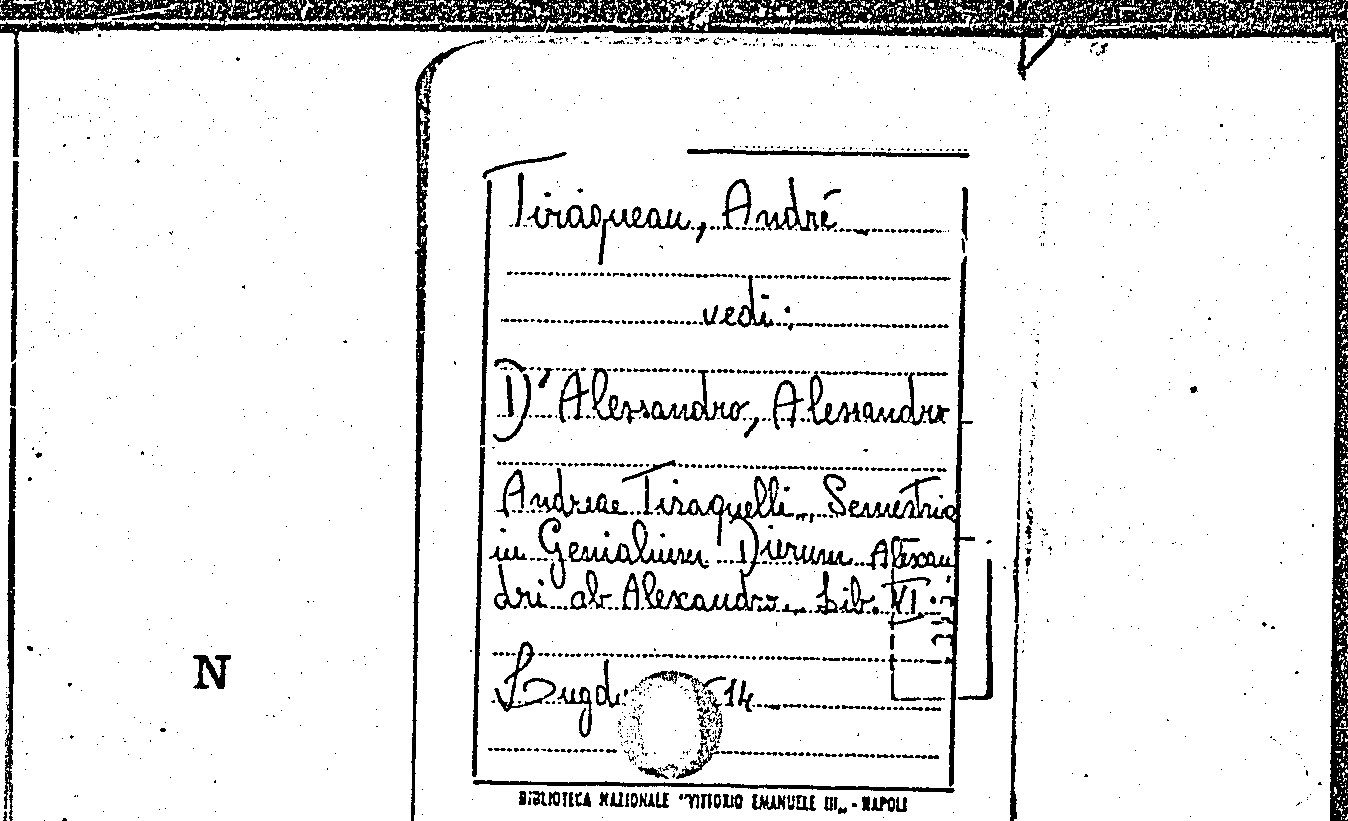 Tiraqueau, André
vedi:
D'Alessandro, Alessandro
Andreae Tiraquelli, Semestria
in Genialium Dierum Alexan
dri ab Alexandro, Lib. VI.
N
Lugd. 14
BIBLIOTECA NAZIONALE "VITTORIO EMANUELE III„ - NAPOLI